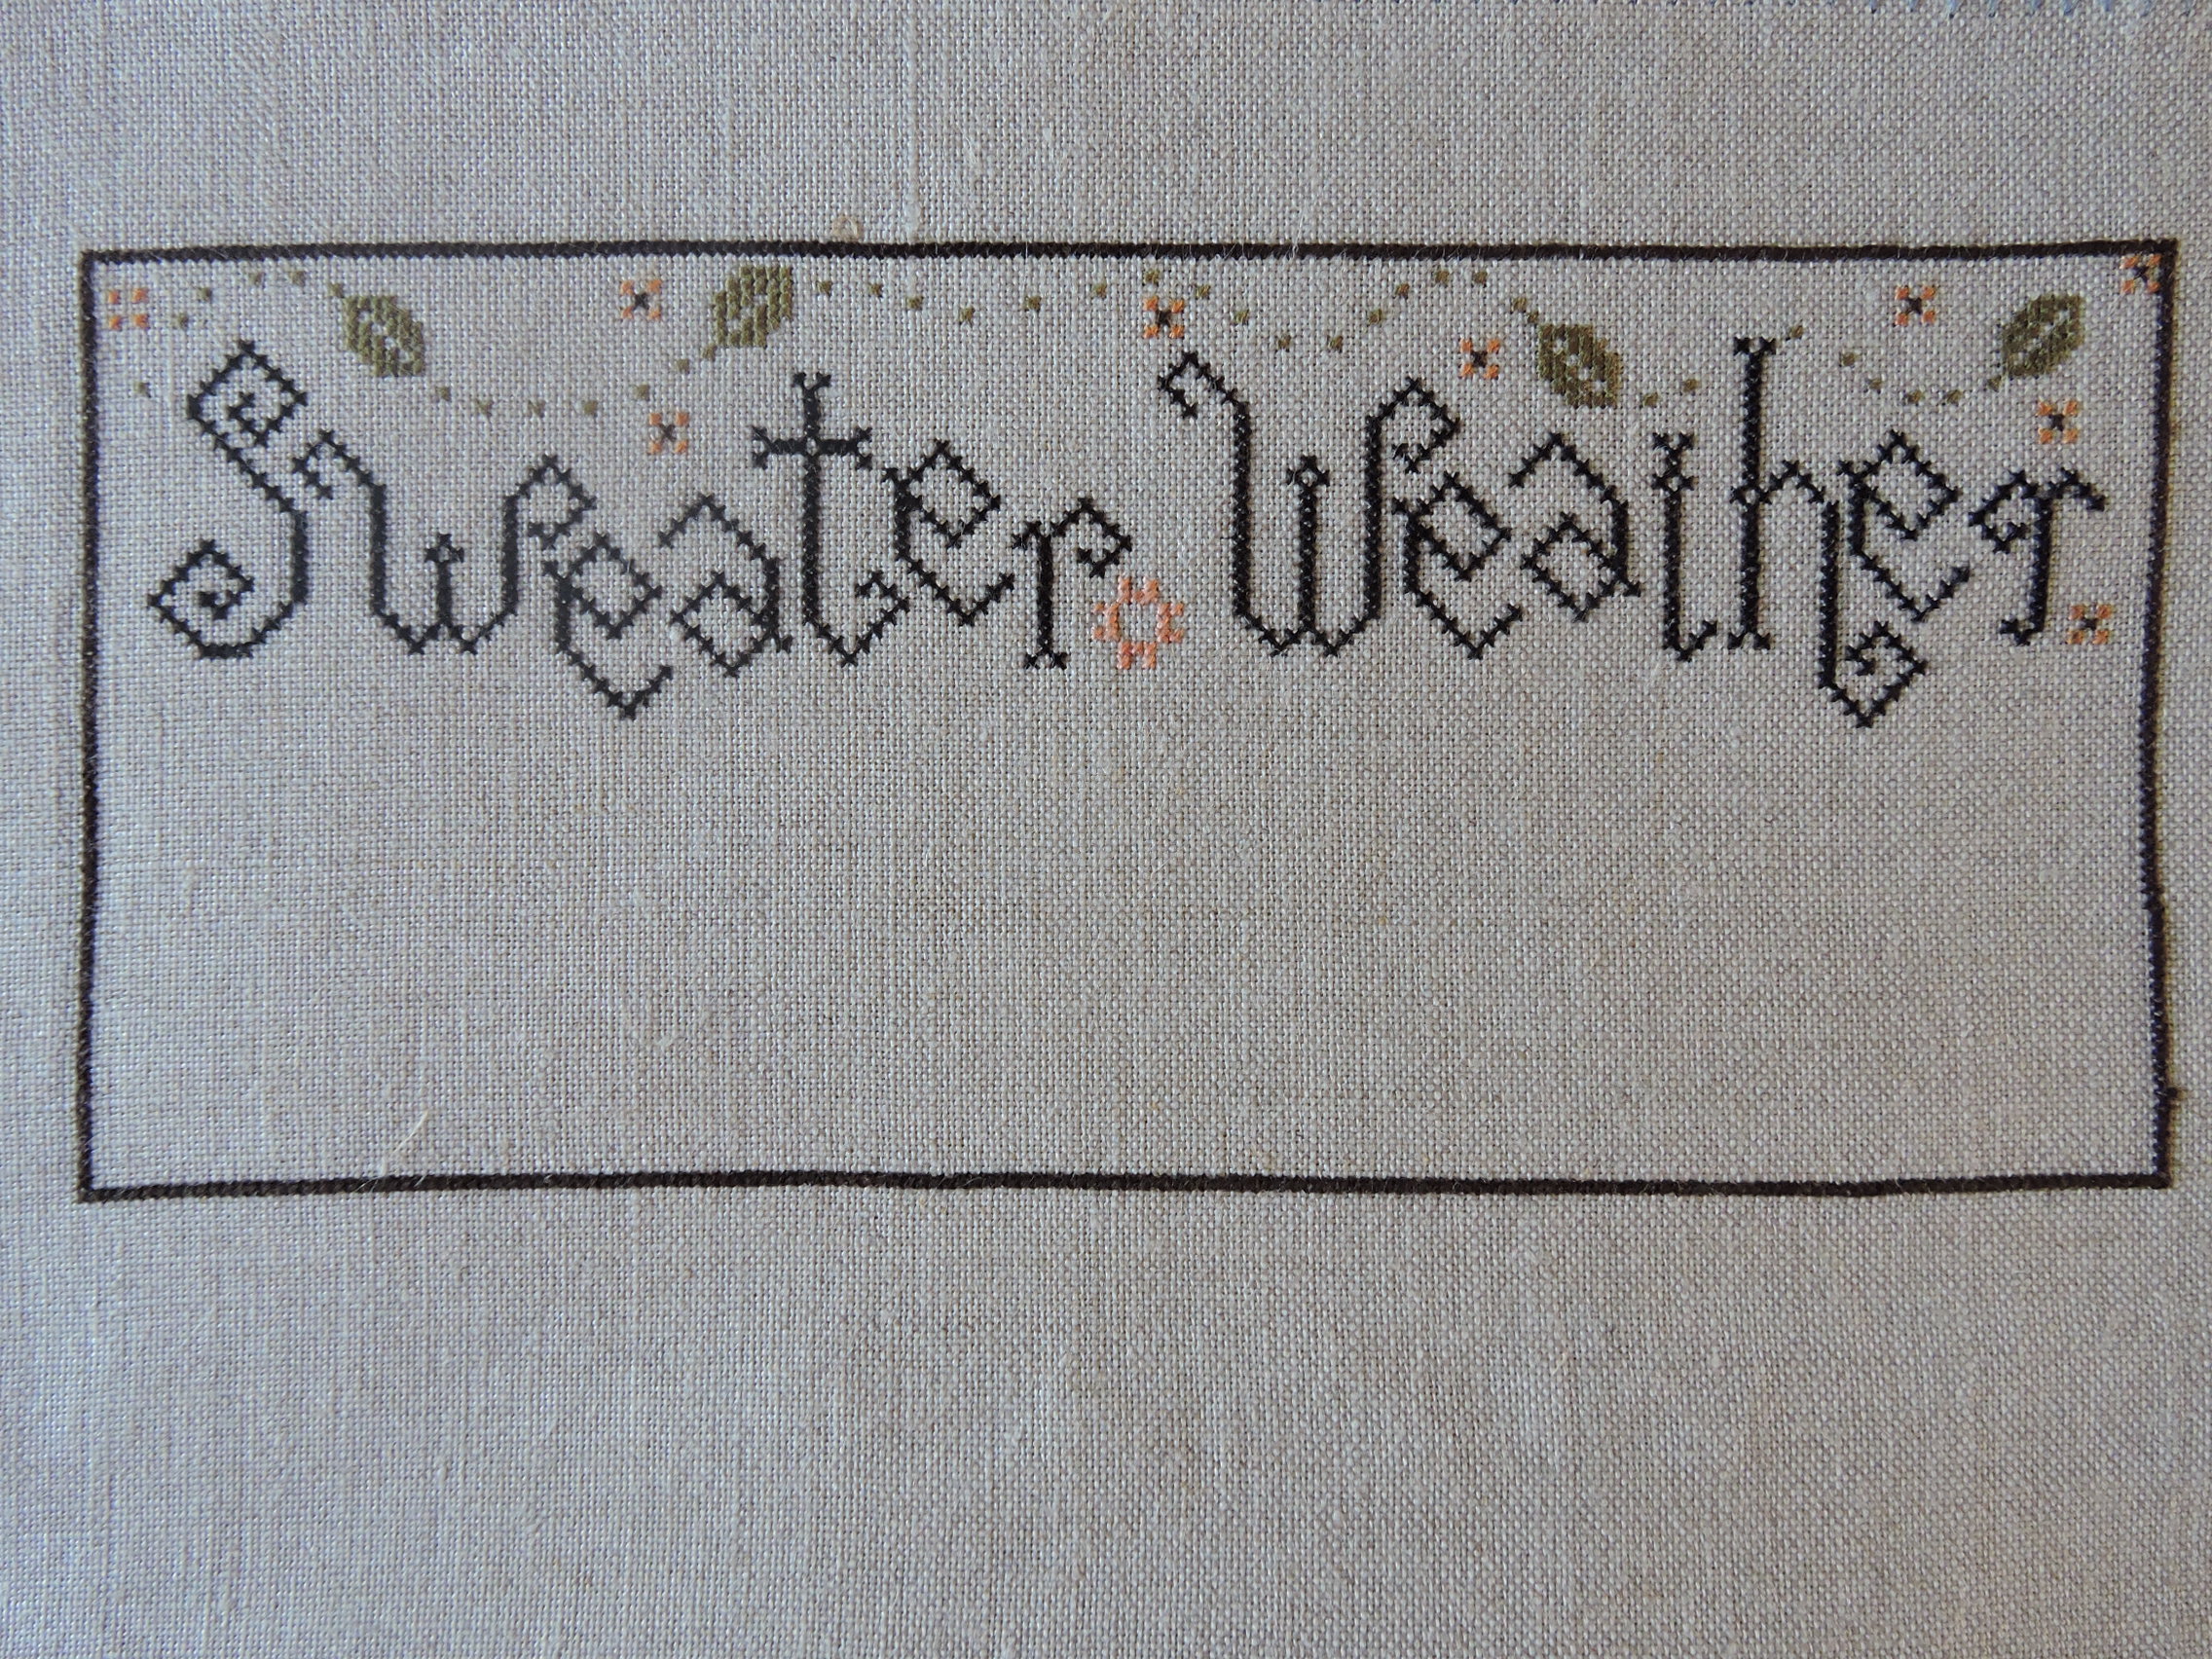 Sweater Weather